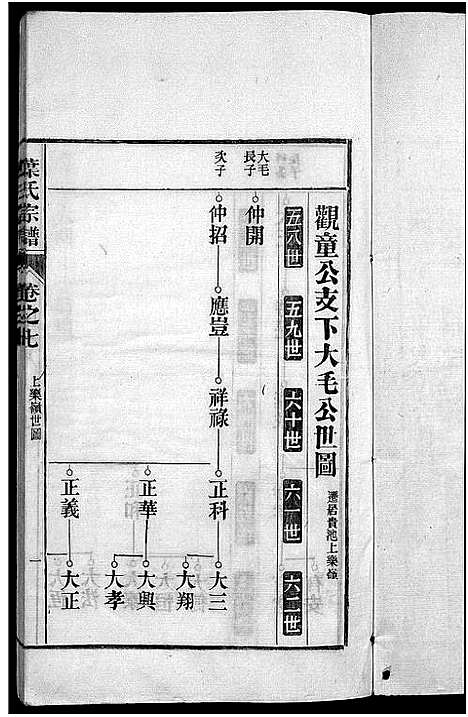 觀童公支下大毛公世圖 遷居貴池上樂嶺
五八世 五九世 六十世 六一世 六二世
大毛
長子
仲開
次子
仲招 應豈 祥祿 正科 大三
大翔
正華 大興
大孝
正義 大正
葉氏宗譜 卷之七 上樂嶺世圖 一